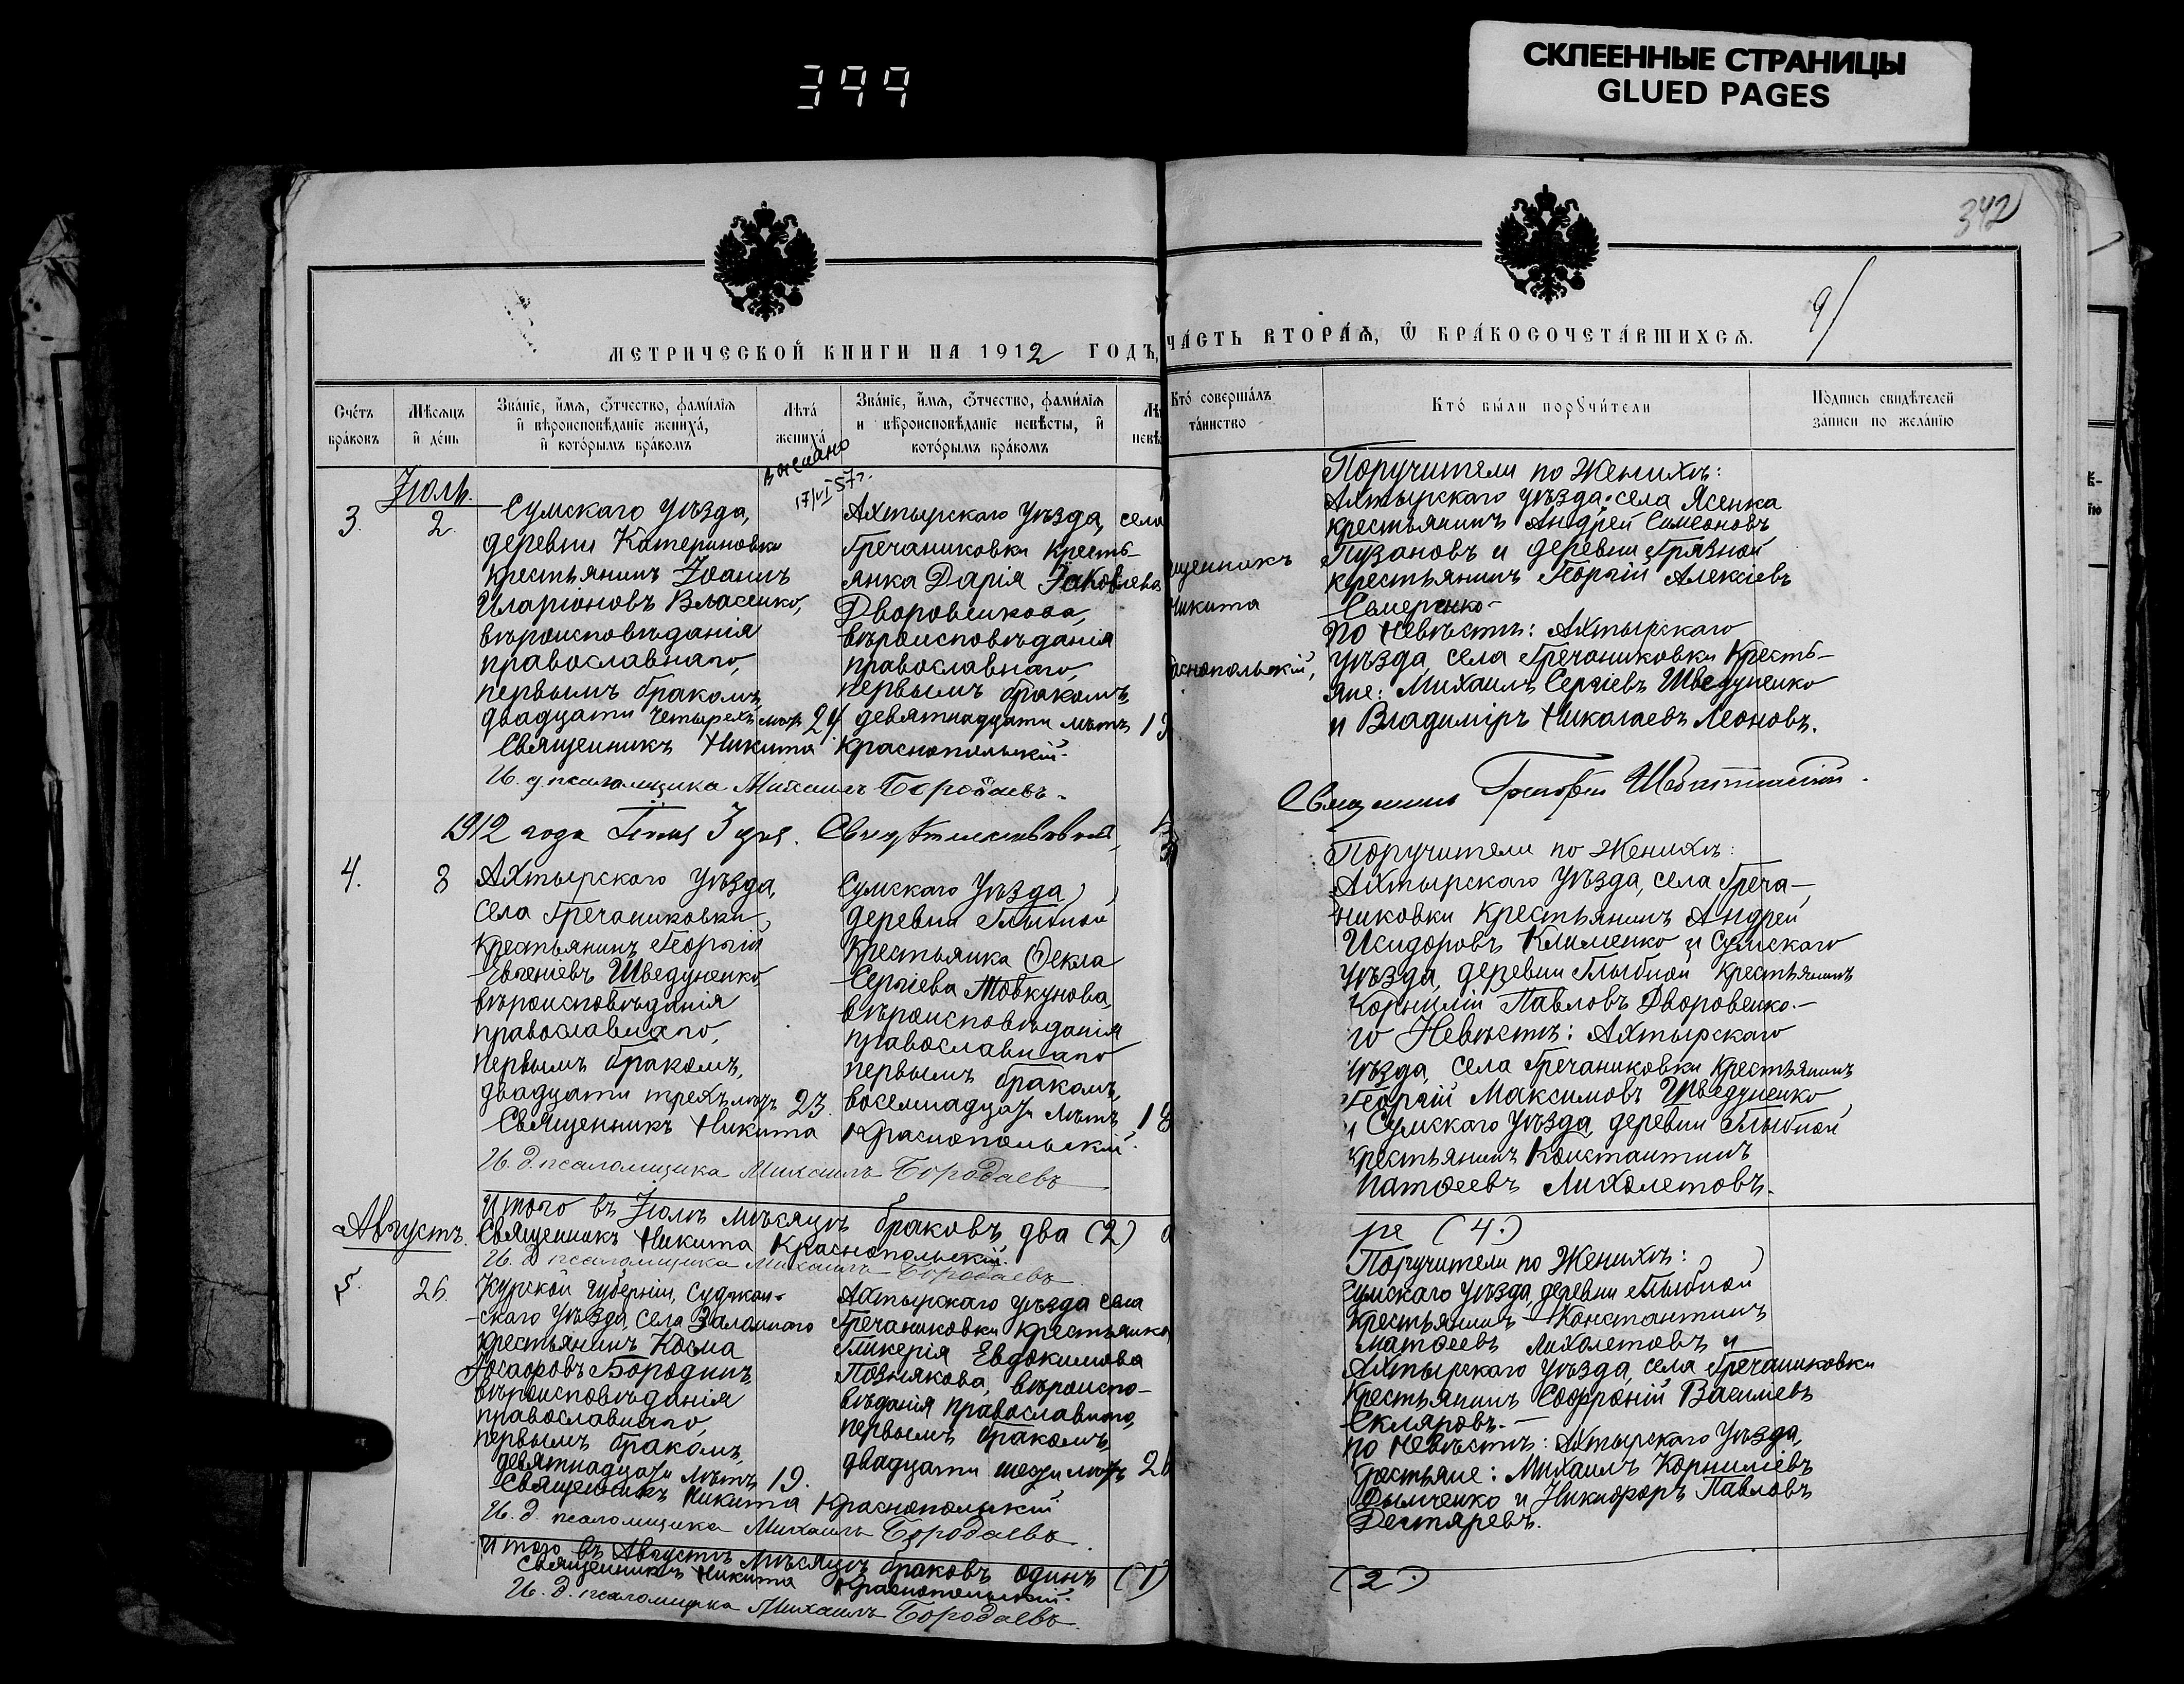 399
СКЛЕЕННЫЕ СТРАНИЦЫ
GLUED PAGES
342
9/
МЕТРИЧЕСКОЙ КНИГИ НА 1912 ГОДЪ,
Счетъ браковъ
Мѣсяцъ и день
Званіе, имя, отчество, фамилія и вѣроисповѣданіе жениха, и которымъ бракомъ
Лѣта жениха
Званіе, имя, отчество, фамилія и вѣроисповѣданіе невѣсты, и которымъ бракомъ
Лѣ
невѣ
17/VI 57г.
Іюль.
3.
2.
Сумскаго уѣзда,
деревни Катериновки
крестьянинъ Іоаннъ
Иларіоновъ Власенко,
вѣроисповѣданія
православнаго,
первымъ бракомъ,
двадцати четырехъ лѣтъ 24
Ахтырскаго уѣзда, села
Гречаниковки кресть-
янка Дарія Іаковлева
Дворовенкова,
вѣроисповѣданія
православнаго,
первымъ бракомъ,
девятнадцати лѣтъ 19
Священникъ Никита Краснопольскій.
И. д. псаломщика Михаилъ Бородаевъ.
1912 года Іюля 3 дня. Свидѣтельствовалъ,
4.
8
Ахтырскаго уѣзда,
села Гречаниковки,
крестьянинъ Георгій
Евгеніевъ Шведуненко,
вѣроисповѣданія
православнаго,
первымъ бракомъ,
двадцати трехъ лѣтъ 23.
Сумскаго уѣзда,
деревни Глыбной
крестьянка Ѳекла
Сергіева Товкунова,
вѣроисповѣданія
православнаго
первымъ бракомъ,
восемнадцати лѣтъ 18
Священникъ Никита Краснопольскій.
И. д. псаломщика Михаилъ Бородаевъ
Итого въ Іюлѣ мѣсяцѣ браковъ два (2)
Священникъ Никита Краснопольскій.
И. д. псаломщика Михаилъ Бородаевъ
Августъ.
5.
26.
Курской губерніи, Суджан-
скаго уѣзда, села
крестьянинъ Косма
Іосафовъ Бородинъ,
вѣроисповѣданія
православнаго,
первымъ бракомъ,
девятнадцати лѣтъ 19.
Ахтырскаго уѣзда села
Гречаниковки крестьянка
Гликерія Евдокимова
Познякова, вѣроиспо-
вѣданія православнаго,
первымъ бракомъ,
двадцати шести лѣтъ 26
Священникъ Никита Краснопольскій
И. д. псаломщика Михаилъ Бородаевъ.
Итого въ Августѣ мѣсяцѣ браковъ одинъ (1)
Священникъ Никита Краснопольскій.
И. д. псаломщика Михаилъ Бородаевъ.
ЧАСТЬ ВТОРАЯ, Ѡ БРАКОСОЧЕТАВШИХСЯ.
Кто совершалъ таинство
Кто были поручители
Подпись свидѣтелей записи по желанію
щенникъ
Никита
раснопольскій,
Поручители по Женихѣ:
Ахтырскаго уѣзда: села Ясенка
крестьянинъ Андрей Симеоновъ
Пузановъ и деревни Грязной
крестьянинъ Георгій Алексіевъ
Семеренко-
По Невѣстѣ: Ахтырскаго
уѣзда, села Гречаниковки кресть-
яне: Михаилъ Сергіевъ Шведуненко
и Владиміръ Николаевъ Леоновъ.
Священникъ Григорій
Поручители по Женихѣ:
Ахтырскаго уѣзда, села Греча-
никовки крестьянинъ Андрей
Исидоровъ Клименко и Сумскаго
уѣзда, деревни Глыбной крестьянинъ
Корнилій Павловъ Дворовенко.-
по Невѣстѣ: Ахтырскаго
уѣзда, села Гречаниковки крестьянинъ
Георгій Максимовъ Шведуненко
и Сумскаго уѣзда, деревни Глыбной
крестьянинъ Константинъ
Матѳеевъ Лихолетовъ.
ре (4.)
Поручители по Женихѣ:
Сумскаго уѣзда, деревни Глыбной
крестьянинъ Константинъ
Матѳеевъ Лихолетовъ и
Ахтырскаго уѣзда, села Гречаниковки
крестьянинъ Софроній Василіевъ
Скляровъ.-
по Невѣстѣ: Ахтырскаго уѣзда,
крестьяне: Михаилъ Корниліевъ
Дымченко и Никифоръ Павловъ
Дегтяревъ.
(2.)